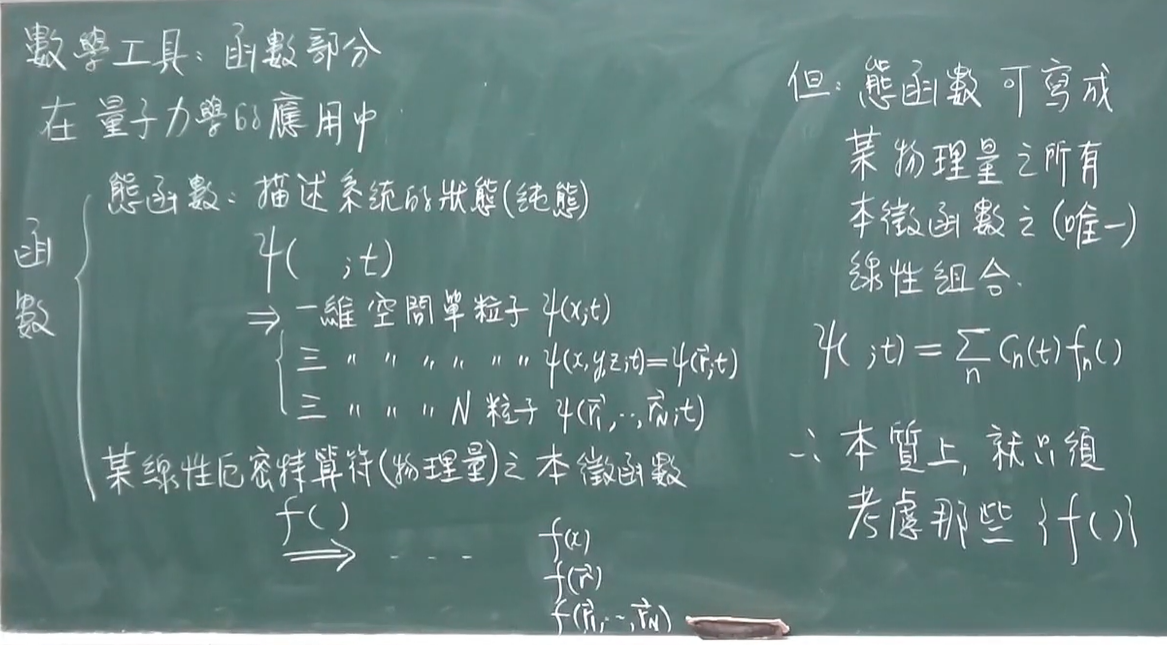 數學工具：函數部分
在量子力學的應用中
函數
態函數：描述系統的狀態(純態)
ψ( ;t)
⇒ 一維空間單粒子 ψ(x;t)
三 〃 〃 〃 〃 〃 〃 ψ(x,y,z;t)=ψ(r⃗;t)
三 〃 〃 〃 N粒子 ψ(r⃗₁,…,r⃗_N;t)
某線性厄密特算符(物理量)之本徵函數
f( )
⇒ - - - - f(x)
f(r⃗)
f(r⃗₁,…,r⃗_N)
但：態函數可寫成
某物理量之所有
本徵函數之(唯一)
線性組合.
ψ( ;t) = ∑ₙ Cₙ(t) fₙ( )
∴ 本質上，就只須
考慮那些{f( )}